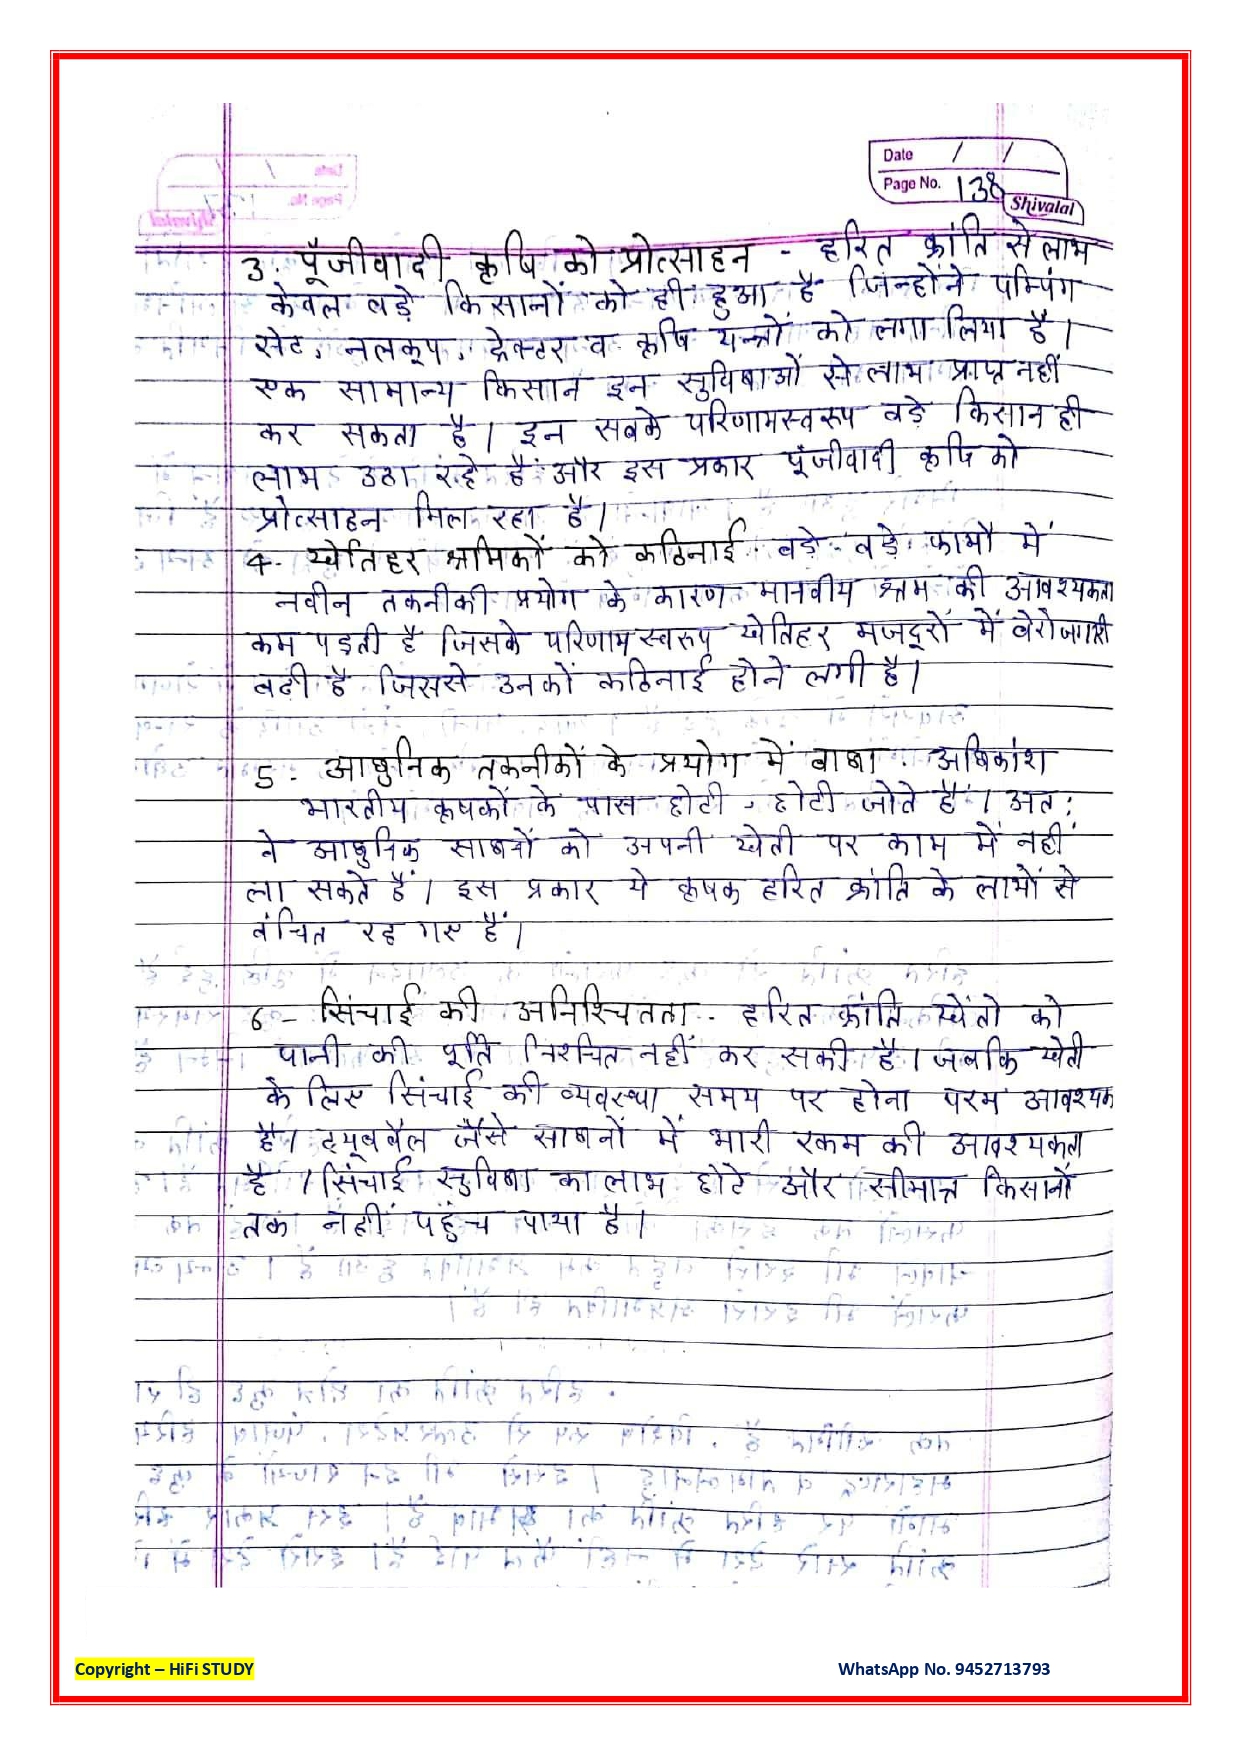 Date / /
Page No. 138
Shivalal
3. पूँजीवादी कृषि को प्रोत्साहन - हरित क्रांति से लाभ
केवल बड़े किसानों को ही हुआ है जिन्होंने पम्पिंग
सेट, नलकूप, ट्रेक्टर व कृषि यन्त्रों को लगा लिया है।
एक सामान्य किसान इन सुविधाओं से लाभ प्राप्त नहीं
कर सकता है। इन सबके परिणामस्वरूप बड़े किसान ही
लाभ उठा रहे हैं और इस प्रकार पूंजीवादी कृषि को
प्रोत्साहन मिल रहा है।
4- खेतिहर श्रमिकों को कठिनाई - बड़े- बड़े फार्मों में
नवीन तकनीकी प्रयोग के कारण मानवीय श्रम की आवश्यकता
कम पड़ती है जिसके परिणामस्वरूप खेतिहर मजदूरों में बेरोजगारी
बढ़ी है जिससे उनकों कठिनाई होने लगी है।
5- आधुनिक तकनीकों के प्रयोग में बाधा - अधिकांश
भारतीय कृषकों के पास छोटी - छोटी जोते हैं। अत:
वे आधुनिक साधनों को अपनी खेती पर काम में नहीं
ला सकते हैं। इस प्रकार ये कृषक हरित क्रांति के लाभों से
वंचित रह गए हैं।
6- सिंचाई की अनिश्चितता - हरित क्रांति खेंतो को
पानी की पूर्ति निश्चित नहीं कर सकी है। जबकि खेती
के लिए सिंचाई की व्यवस्था समय पर होना परम आवश्यक
है। ट्यूबवैल जैसे साधनों में भारी रकम की आवश्यकता
है। सिंचाई सुविधा का लाभ छोटे और सीमान्त किसानों
तक नहीं पहुंच पाया है।
Copyright – HiFi STUDY
WhatsApp No. 9452713793